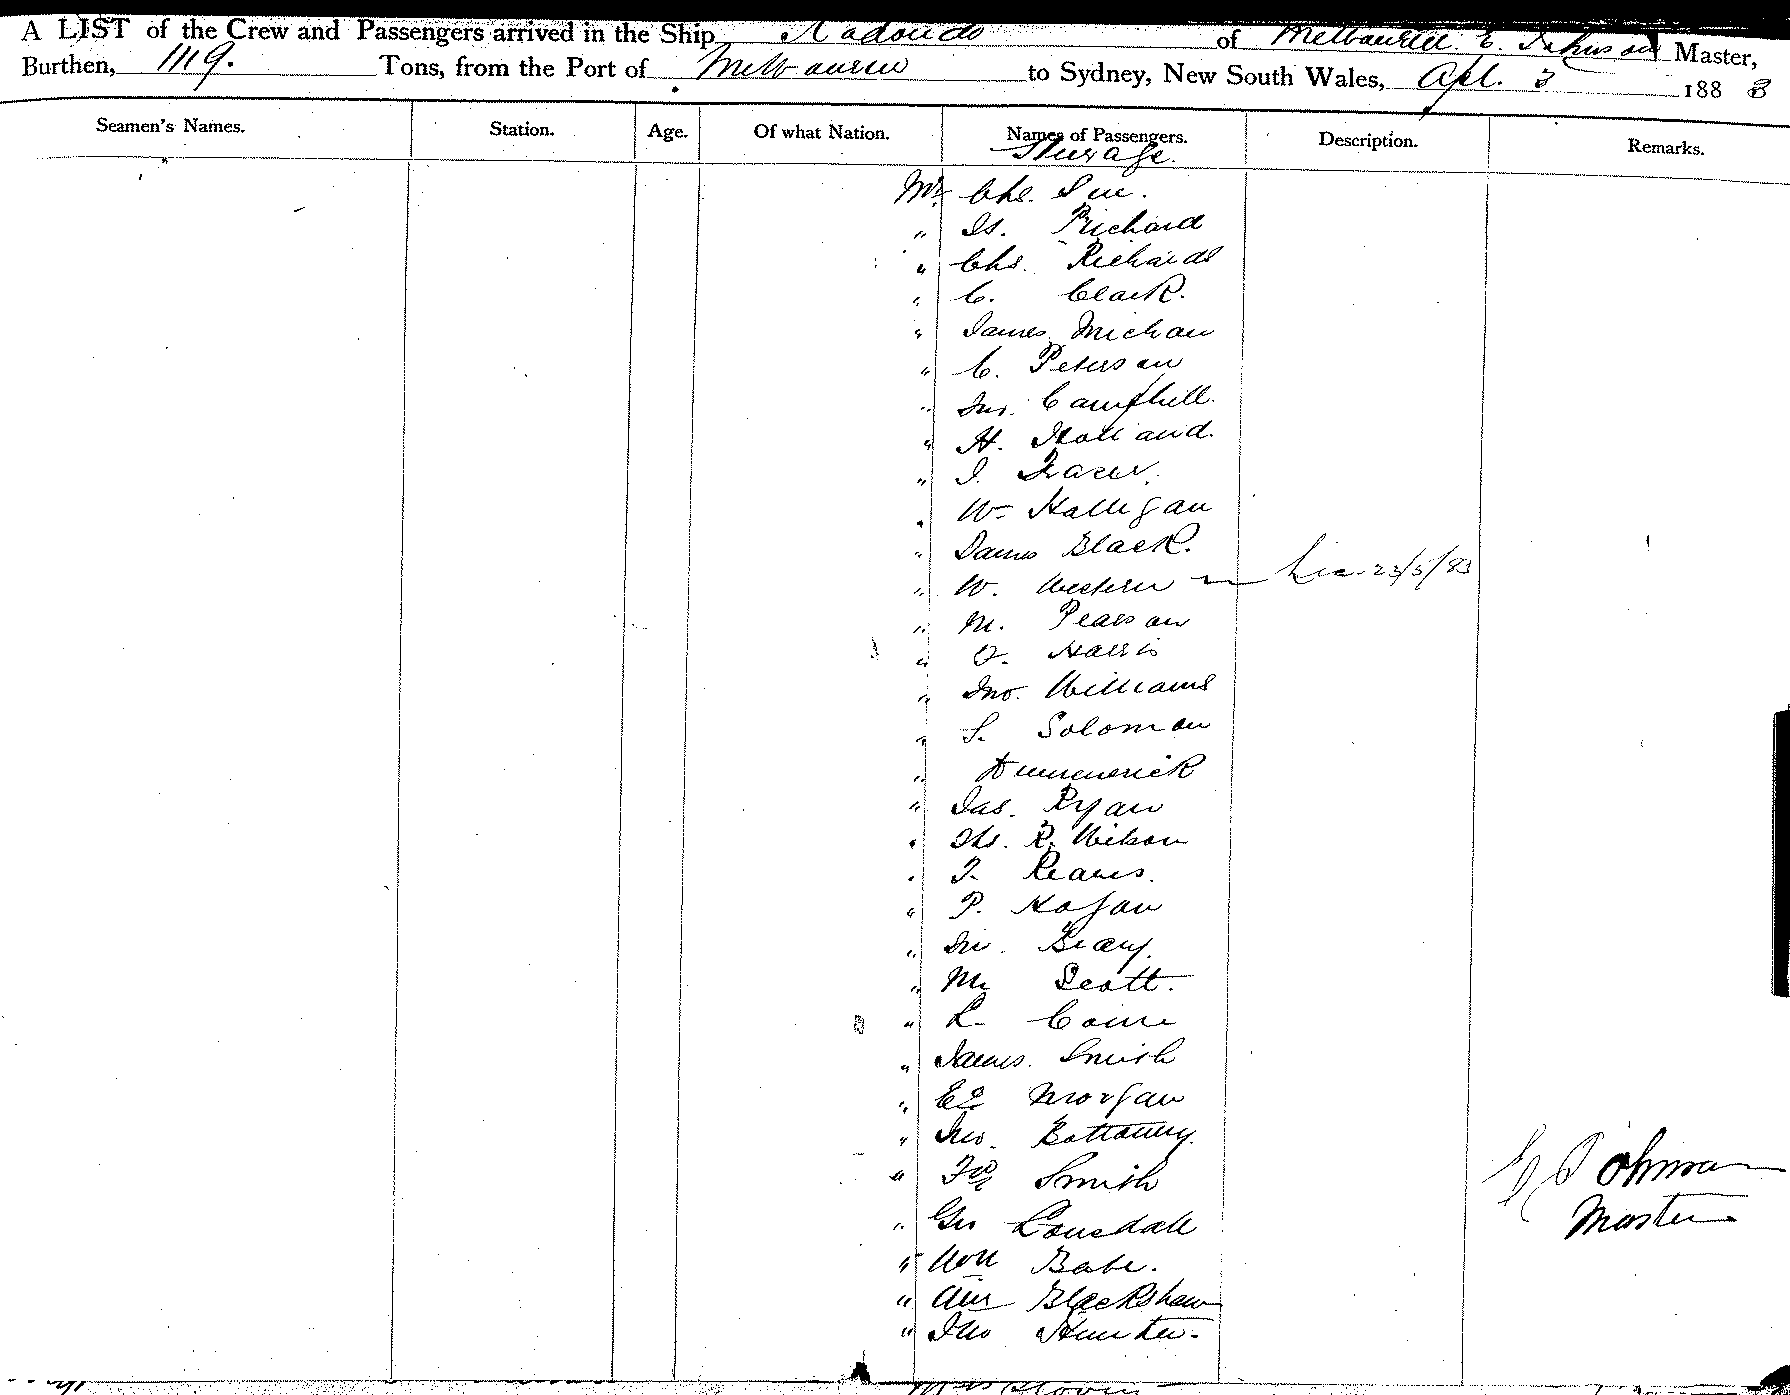 A LIST of the Crew and Passengers arrived in the Ship Rodondo of Melbourne E. Johnson Master,
Burthen, 1119. Tons, from the Port of Melbourne to Sydney, New South Wales, Apl. 3 1883
Seamen's Names. Station. Age. Of what Nation. Names of Passengers. Description. Remarks.
Steerage.
Mr Chs.
" Js. Prichard
" Chs. Richards
" C. Clark.
" James
" C. Peterson
" Jno. Campbell.
" H. Holland.
" J. Frazer.
" Wm Halligan
" James Black.
" W. Western 23/5/83
" M. Pearson
" Harris
" Jno. Williams
" S. Solomon
"
" Jas. Ryan
" Ths. R. Wilson
" T.
" P. Hogan
" Jno.
" M. Scott.
" L.
" James. Smith
" Ed Morgan
" Jno.
" Fr Smith
" Geo Lonsdale
" Wm Babe.
" Blackshaw
" Jno Hunter.
E Johnson
Master